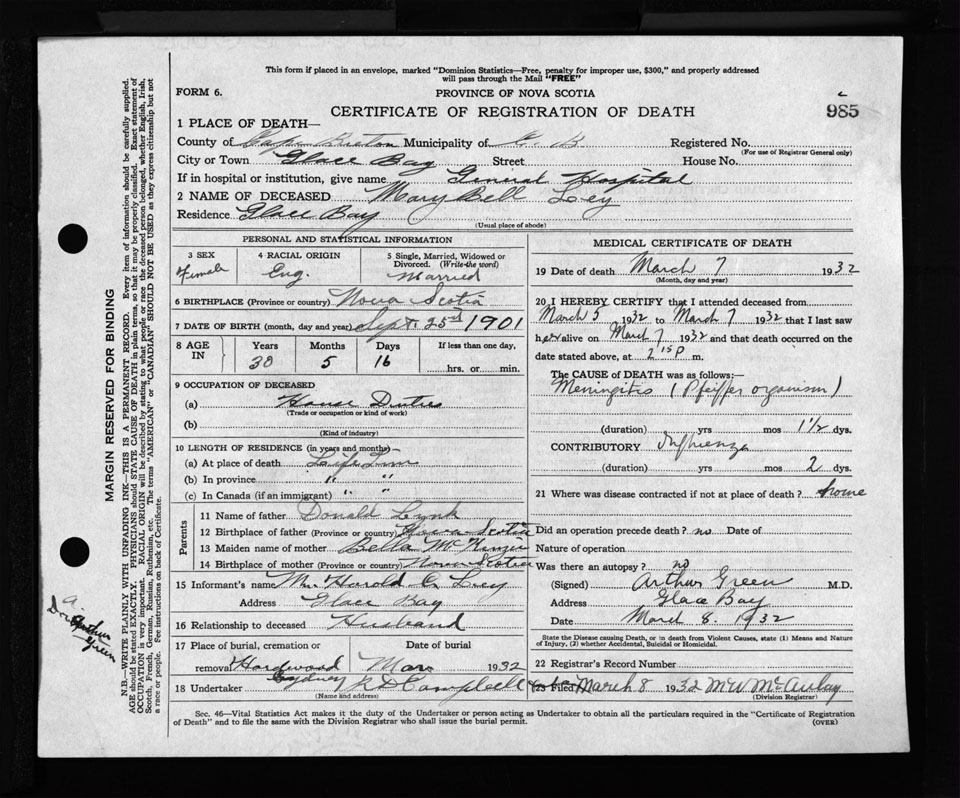 This form if placed in an envelope, marked "Dominion Statistics—Free, penalty for improper use, $300," and properly addressed
will pass through the Mail "FREE"
FORM 6.
PROVINCE OF NOVA SCOTIA
CERTIFICATE OF REGISTRATION OF DEATH
985
1 PLACE OF DEATH—
County of Cape Breton Municipality of C. B. Registered No.
(For use of Registrar General only)
City or Town Glace Bay Street House No.
If in hospital or institution, give name General Hospital
2 NAME OF DECEASED Mary Bell Ley
Residence Glace Bay
(Usual place of abode)
PERSONAL AND STATISTICAL INFORMATION
3 SEX
Female
4 RACIAL ORIGIN
Eng.
5 Single, Married, Widowed or
Divorced. (Write the word)
Married
6 BIRTHPLACE (Province or country) Nova Scotia
7 DATE OF BIRTH (month, day and year) Sept. 25 1901
8 AGE IN
Years Months Days If less than one day,
30 5 16 hrs. or min.
9 OCCUPATION OF DECEASED
(a) House Duties
(Trade or occupation or kind of work)
(b)
(Kind of industry)
10 LENGTH OF RESIDENCE (in years and months)—
(a) At place of death Life Time
(b) In province " "
(c) In Canada (if an immigrant) " "
Parents
11 Name of father Donald Lynk
12 Birthplace of father (Province or country) Nova Scotia
13 Maiden name of mother Bella McKenzie
14 Birthplace of mother (Province or country) Nova Scotia
15 Informant's name Mr. Harold C. Ley
Address Glace Bay
16 Relationship to deceased Husband
17 Place of burial, cremation or Date of burial
removal Hardwood Mar 1932
Sydney
18 Undertaker Campbell
(Name and address)
MEDICAL CERTIFICATE OF DEATH
19 Date of death March 7 1932
(Month, day and year)
20 I HEREBY CERTIFY that I attended deceased from
March 5 1932 to March 7 1932 that I last saw
her alive on March 7 1932 and that death occurred on the
date stated above, at 2 15 P m.
The CAUSE of DEATH was as follows:—
Meningitis (Pfeiffer organism)
(duration) yrs mos 1½ dys.
CONTRIBUTORY Influenza
(duration) yrs mos 2 dys.
21 Where was disease contracted if not at place of death? home
Did an operation precede death? no Date of
Nature of operation
Was there an autopsy? no
(Signed) Arthur Green M.D.
Address Glace Bay
Date March 8. 1932
State the Disease causing Death, or in death from Violent Causes, state (1) Means and Nature
of Injury, (2) whether Accidental, Suicidal or Homicidal.
22 Registrar's Record Number
23 Filed March 8 1932 M W McAulay
(Division Registrar)
Sec. 46—Vital Statistics Act makes it the duty of the Undertaker or person acting as Undertaker to obtain all the particulars required in the "Certificate of Registration
of Death" and to file the same with the Division Registrar who shall issue the burial permit.
(OVER)
MARGIN RESERVED FOR BINDING
N.B.—WRITE PLAINLY WITH UNFADING INK—THIS IS A PERMANENT RECORD. Every item of information should be carefully supplied.
AGE should be stated EXACTLY. PHYSICIANS should STATE CAUSE OF DEATH in plain terms, so that it may be properly classified. Exact statement of
OCCUPATION is very important. RACIAL ORIGIN will be described by stating to what people or race the deceased person belonged, whether English, Irish,
Scotch, French, German, Russian, Ruthenian, etc. The terms "AMERICAN" or "CANADIAN" SHOULD NOT BE USED as they express citizenship but not
a race or people. Fee instructions on back of Certificate.
Arthur
Green